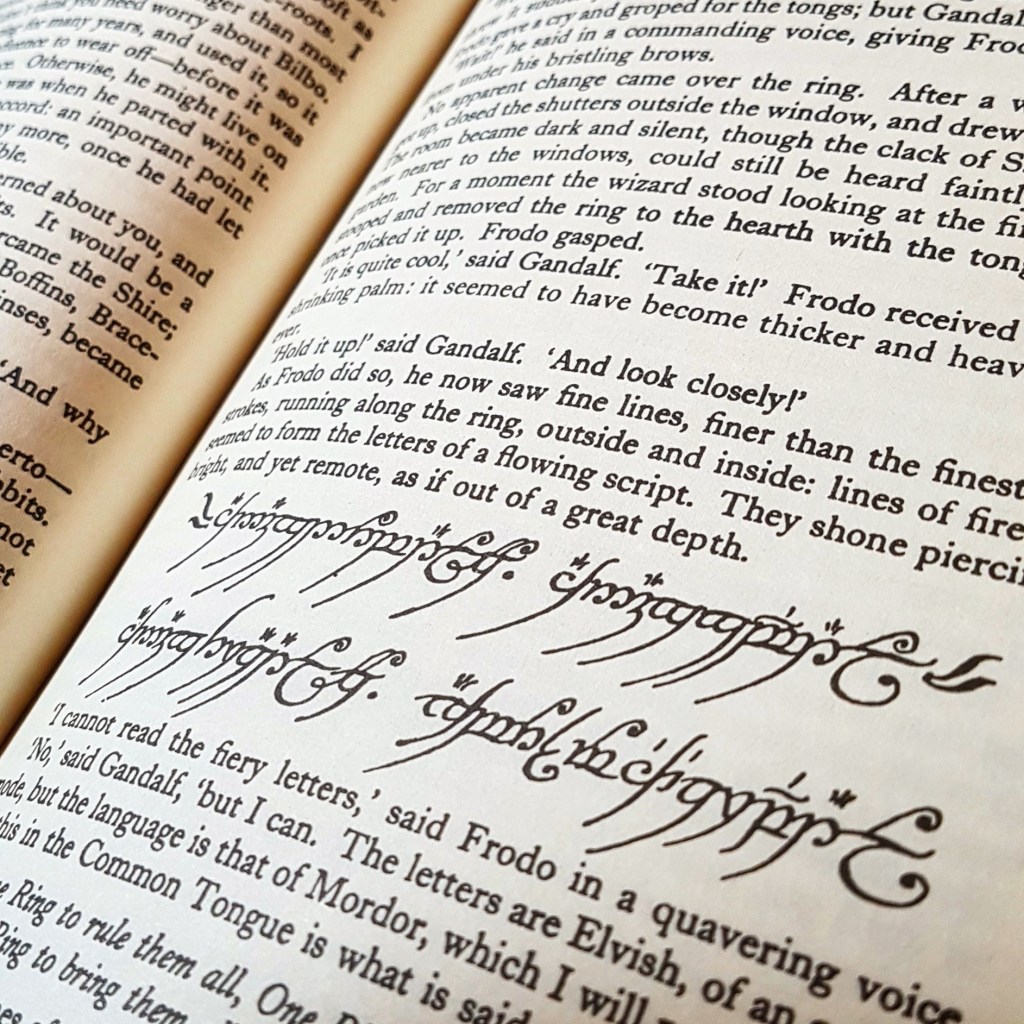 oft as
-roots. I
nger than most
you need worry about Bilbo.
for many years, and used it, so it
to wear off—before it was
Otherwise, he might live on
was when he parted with it.
accord: an important point.
any more, once he had let
erned about you, and
It would be a
the Shire;
Boffins, Brace-
became
'And why
erto—
not
gave a cry and groped for the tongs; but Gandal
'Wait!' he said in a commanding voice, giving Fro
under his bristling brows.
No apparent change came over the ring. After a
got up, closed the shutters outside the window, and drew
The room became dark and silent, though the clack of S
now nearer to the windows, could still be heard faintl
garden. For a moment the wizard stood looking at the fi
stooped and removed the ring to the hearth with the tong
once picked it up. Frodo gasped.
'It is quite cool,' said Gandalf. 'Take it!' Frodo received
shrinking palm: it seemed to have become thicker and heav
ever.
'Hold it up!' said Gandalf. 'And look closely!'
As Frodo did so, he now saw fine lines, finer than the finest
strokes, running along the ring, outside and inside: lines of fire
seemed to form the letters of a flowing script. They shone pierci
bright, and yet remote, as if out of a great depth.
'I cannot read the fiery letters,' said Frodo in a quavering voice.
'No,' said Gandalf, 'but I can. The letters are Elvish, of an
mode, but the language is that of Mordor, which I will
this in the Common Tongue is what is said
Ring to rule them all, One
Ring to bring them